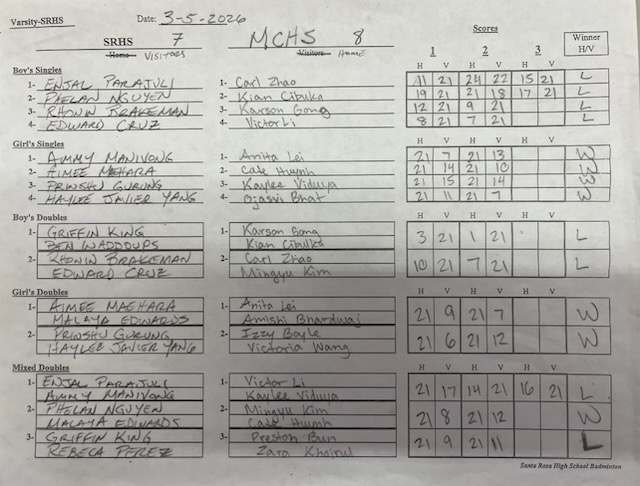 Varsity-SRHS Date: 3-5-2026
SRHS 7 MCHS 8 Scores Winner H/V
Home VISITORS Visitors HOME 1 2 3
Boy's Singles H V H V H V
1- ENJAL PARAJULI 1- Carl Zhao 11 21 24 22 15 21 L
2- PHELAN NGUYEN 2- Kian Cibulka 19 21 21 18 17 21 L
3- RHONIN BRAKEMAN 3- Karson Gong 12 21 9 21 L
4- EDWARD CRUZ 4- Victor Li 8 21 7 21 L
Girl's Singles H V H V H V
1- AMMY MANIVONG 1- Anita Lei 21 7 21 13 W
2- AIMEE MAEHARA 2- Cate Huynh 21 14 21 10 W
3- PRINSHU GURUNG 3- Kaylee Viduya 21 15 21 14 W
4- HAYLEE JAVIER YANG 4- Ojasvi Bhat 21 11 21 7 W
Boy's Doubles H V H V H V
1- GRIFFIN KING 1- Karson Gong 3 21 1 21 L
BEN WADDOUPS Kian Cibulka
2- RHONIN BRAKEMAN 2- Carl Zhao 10 21 7 21 L
EDWARD CRUZ Mingyu Kim
Girl's Doubles H V H V H V
1- AIMEE MAEHARA 1- Anita Lei 21 9 21 7 W
MALAYA EDWARDS Amishi Bhardwaj
2- PRINSHU GURUNG 2- Izzy Boyle 21 6 21 12 W
HAYLEE JAVIER YANG Victoria Wang
Mixed Doubles H V H V H V
1- ENJAL PARAJULI 1- Victor Li 21 17 14 21 16 21 L
AMMY MANIVONG Kaylee Viduya
2- PHELAN NGUYEN 2- Mingyu Kim 21 8 21 12 W
MALAYA EDWARDS Cate Huynh
3- GRIFFIN KING 3- Preston Bun 21 9 21 11 L
REBECA PEREZ Zara Khairul
Santa Rosa High School Badminton